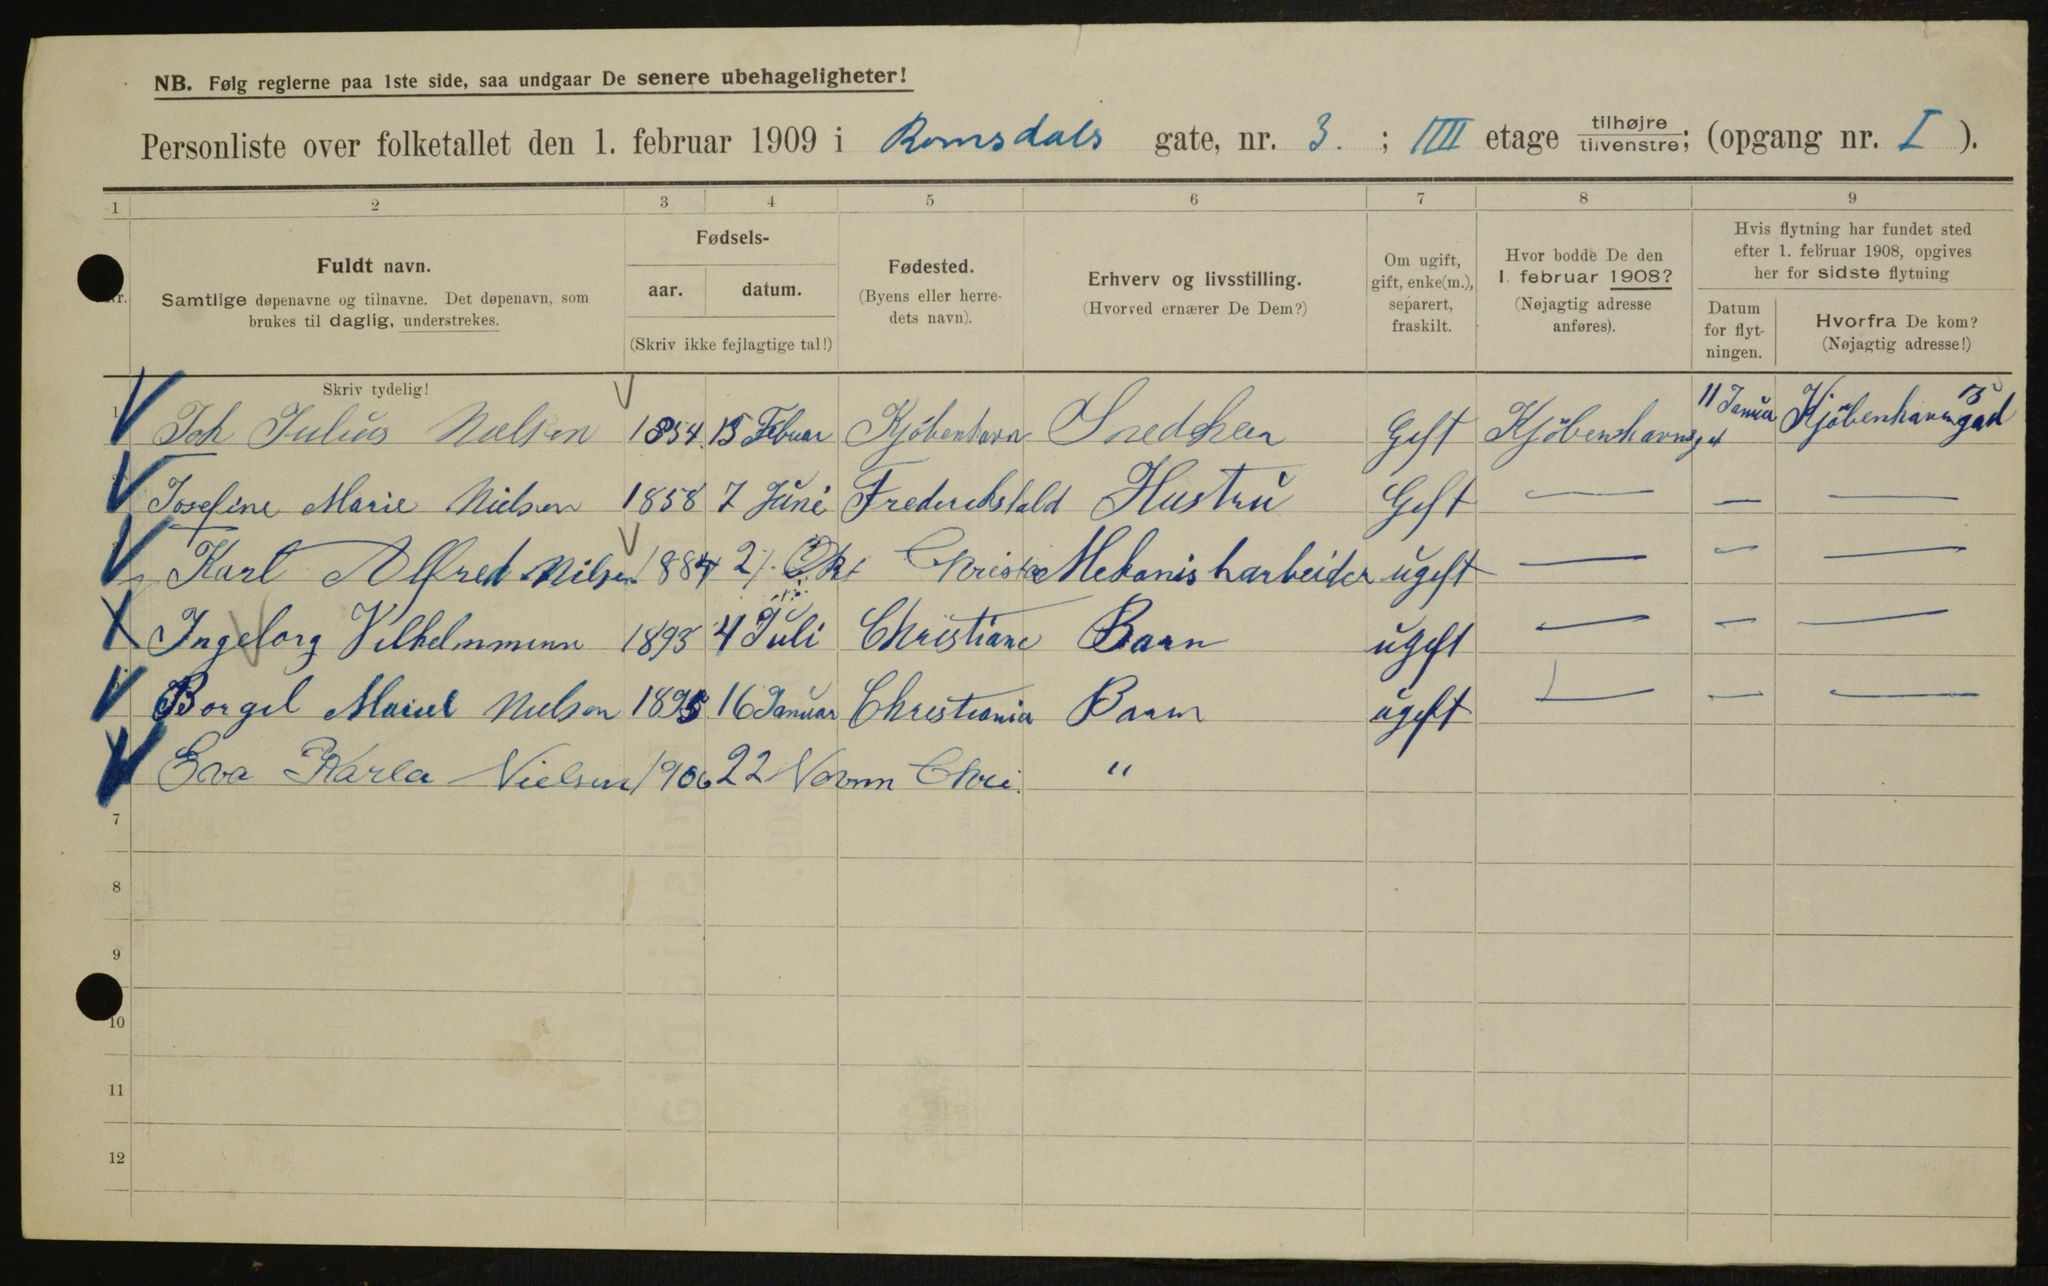 NB. Følg reglerne paa 1ste side, saa undgaar De senere ubehageligheter!
Personliste over folketallet den 1. februar 1909 i Romsdals gate, nr. 3. ; IIII etage tilhøjre tilvenstre; (opgang nr. I ).
1 2 3 4 5 6 7 8 9
Nr.
Fuldt navn.
Samtlige døpenavne og tilnavne. Det døpenavn, som
brukes til daglig, understrekes.
Skriv tydelig!
Fødsels-
aar. datum.
(Skriv ikke fejlagtige tal!)
Fødested.
(Byens eller herre-
dets navn).
Erhverv og livsstilling.
(Hvorved ernærer De Dem?)
Om ugift,
gift, enke(m.),
separert,
fraskilt.
Hvor bodde De den
1. februar 1908?
(Nøjagtig adresse
anføres).
Hvis flytning har fundet sted
efter 1. februar 1908, opgives
her for sidste flytning
Datum
for flyt-
ningen.
Hvorfra De kom?
(Nøjagtig adresse!)
1 Joh Julius Nielsen 1854. 15 Februar Kjöbenhavn Geft Kjöbenhavnsgt 11 Janua Kjöbenhavnsgad 15
Josefine Marie Nielsen 1858 7 Juni Hustru Geft — — —
Karl Alfred Nilsen 1884 Okt Mekanisk arbeider ugeft — — —
Ingeborg 4 Juli Christiane Barn ugeft — — —
Nielsen 16 Januar Christiania Barn ugeft — — —
Eva Karla Nielsen 1906 22 Chri. "
7
8
9
10
11
12